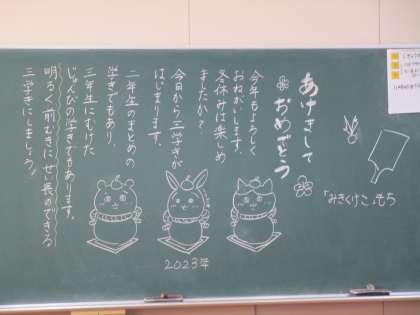 あけまして
おめでとう
今年もよろしく
おねがいします。
冬休みは楽しめ
ましたか？
今日から三学きが
はじまります。
二年生のまとめの
学きでもあり、
三年生にむけた
じゅんびの学きでもあります。
明るく前むきに、せい長のできる
三学きにしましょう！
「みきくけこ」もち
2023年